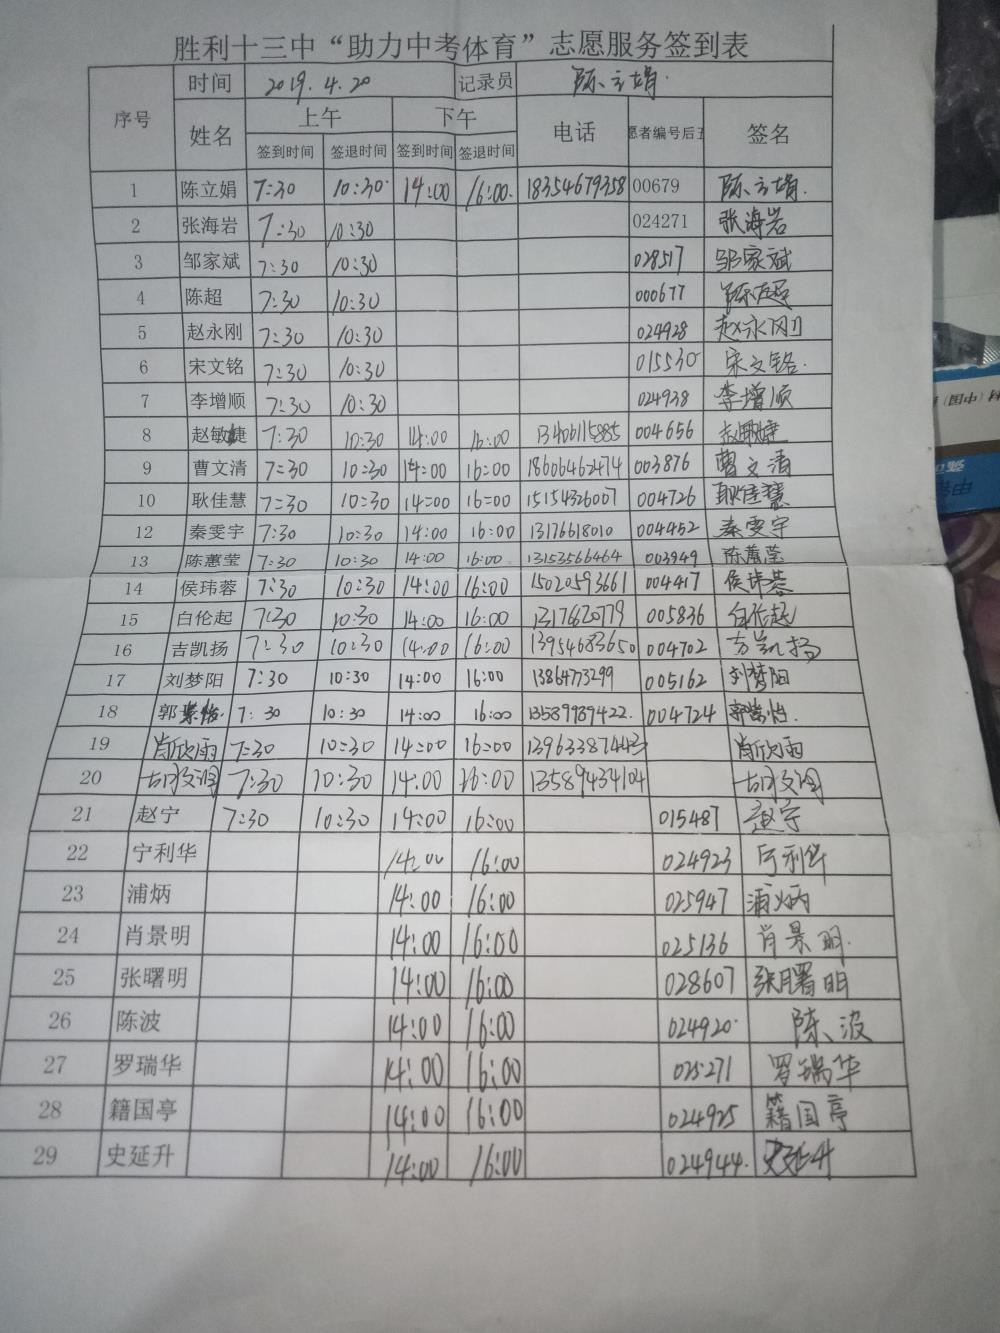 胜利十三中“助力中考体育”志愿服务签到表
序号 时间 2019.4.20 记录员 陈立娟
姓名 上午 下午 电话 愿者编号后五 签名
签到时间 签退时间 签到时间 签退时间
1 陈立娟 7:30 10:30 14:00 16:00 18354679358 00679 陈立娟
2 张海岩 7:30 10:30 024271 张海岩
3 邹家斌 7:30 10:30 028517 邹家斌
4 陈超 7:30 10:30 000677 陈超
5 赵永刚 7:30 10:30 024928 赵永刚
6 宋文铭 7:30 10:30 015530 宋文铭
7 李增顺 7:30 10:30 024938 李增顺
8 赵敏婕 7:30 10:30 14:00 16:00 13406115885 004656 赵敏婕
9 曹文清 7:30 10:30 14:00 16:00 18606462474 003876 曹文清
10 耿佳慧 7:30 10:30 14:00 16:00 15154326007 004726 耿佳慧
12 秦雯宇 7:30 10:30 14:00 16:00 13176618010 004452 秦雯宇
13 陈蕙莹 7:30 10:30 14:00 16:00 13153566464 003949 陈蕙莹
14 侯玮蓉 7:30 10:30 14:00 16:00 15020593661 004417 侯玮蓉
15 白伦起 7:30 10:30 14:00 16:00 13176620779 005836 白伦起
16 吉凯扬 7:30 10:30 14:00 16:00 13954683650 004702 吉凯扬
17 刘梦阳 7:30 10:30 14:00 16:00 13864773299 005162 刘梦阳
18 郭紫怡 7:30 10:30 14:00 16:00 13589987422 004724 郭紫怡
19 肖欣雨 7:30 10:30 14:00 16:00 13963387443 肖欣雨
20 7:30 10:30 14:00 16:00 13589434104
21 赵宁 7:30 10:30 14:00 16:00 015487 赵宁
22 宁利华 14:00 16:00 024923 宁利华
23 浦炳 14:00 16:00 025947 浦炳
24 肖景明 14:00 16:00 025136 肖景明
25 张曙明 14:00 16:00 028607 张曙明
26 陈波 14:00 16:00 024920 陈波
27 罗瑞华 14:00 16:00 025271 罗瑞华
28 籍国亭 14:00 16:00 024925 籍国亭
29 史延升 14:00 16:00 024944 史延升